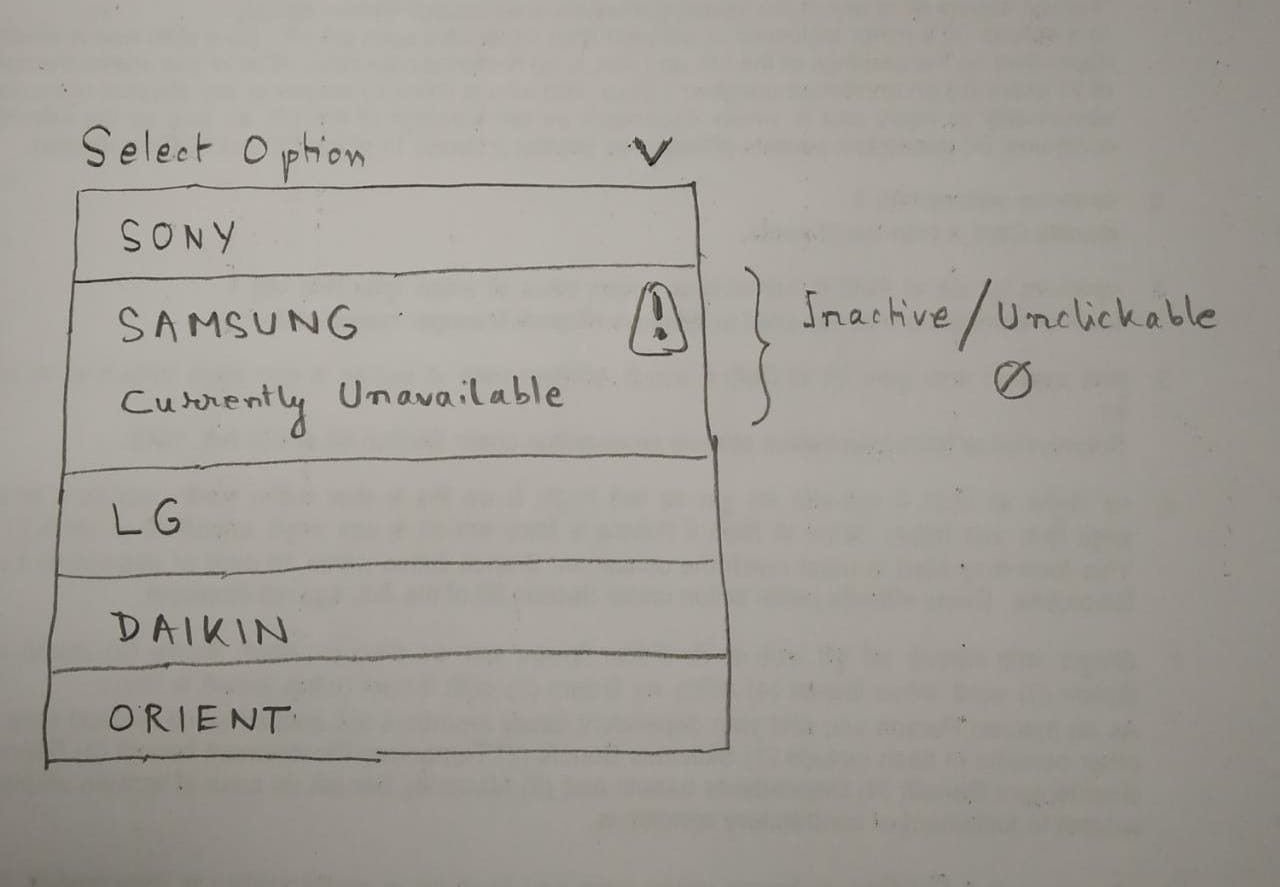 Select Option
SONY
SAMSUNG
Currently Unavailable
Inactive/Unclickable
LG
DAIKIN
ORIENT